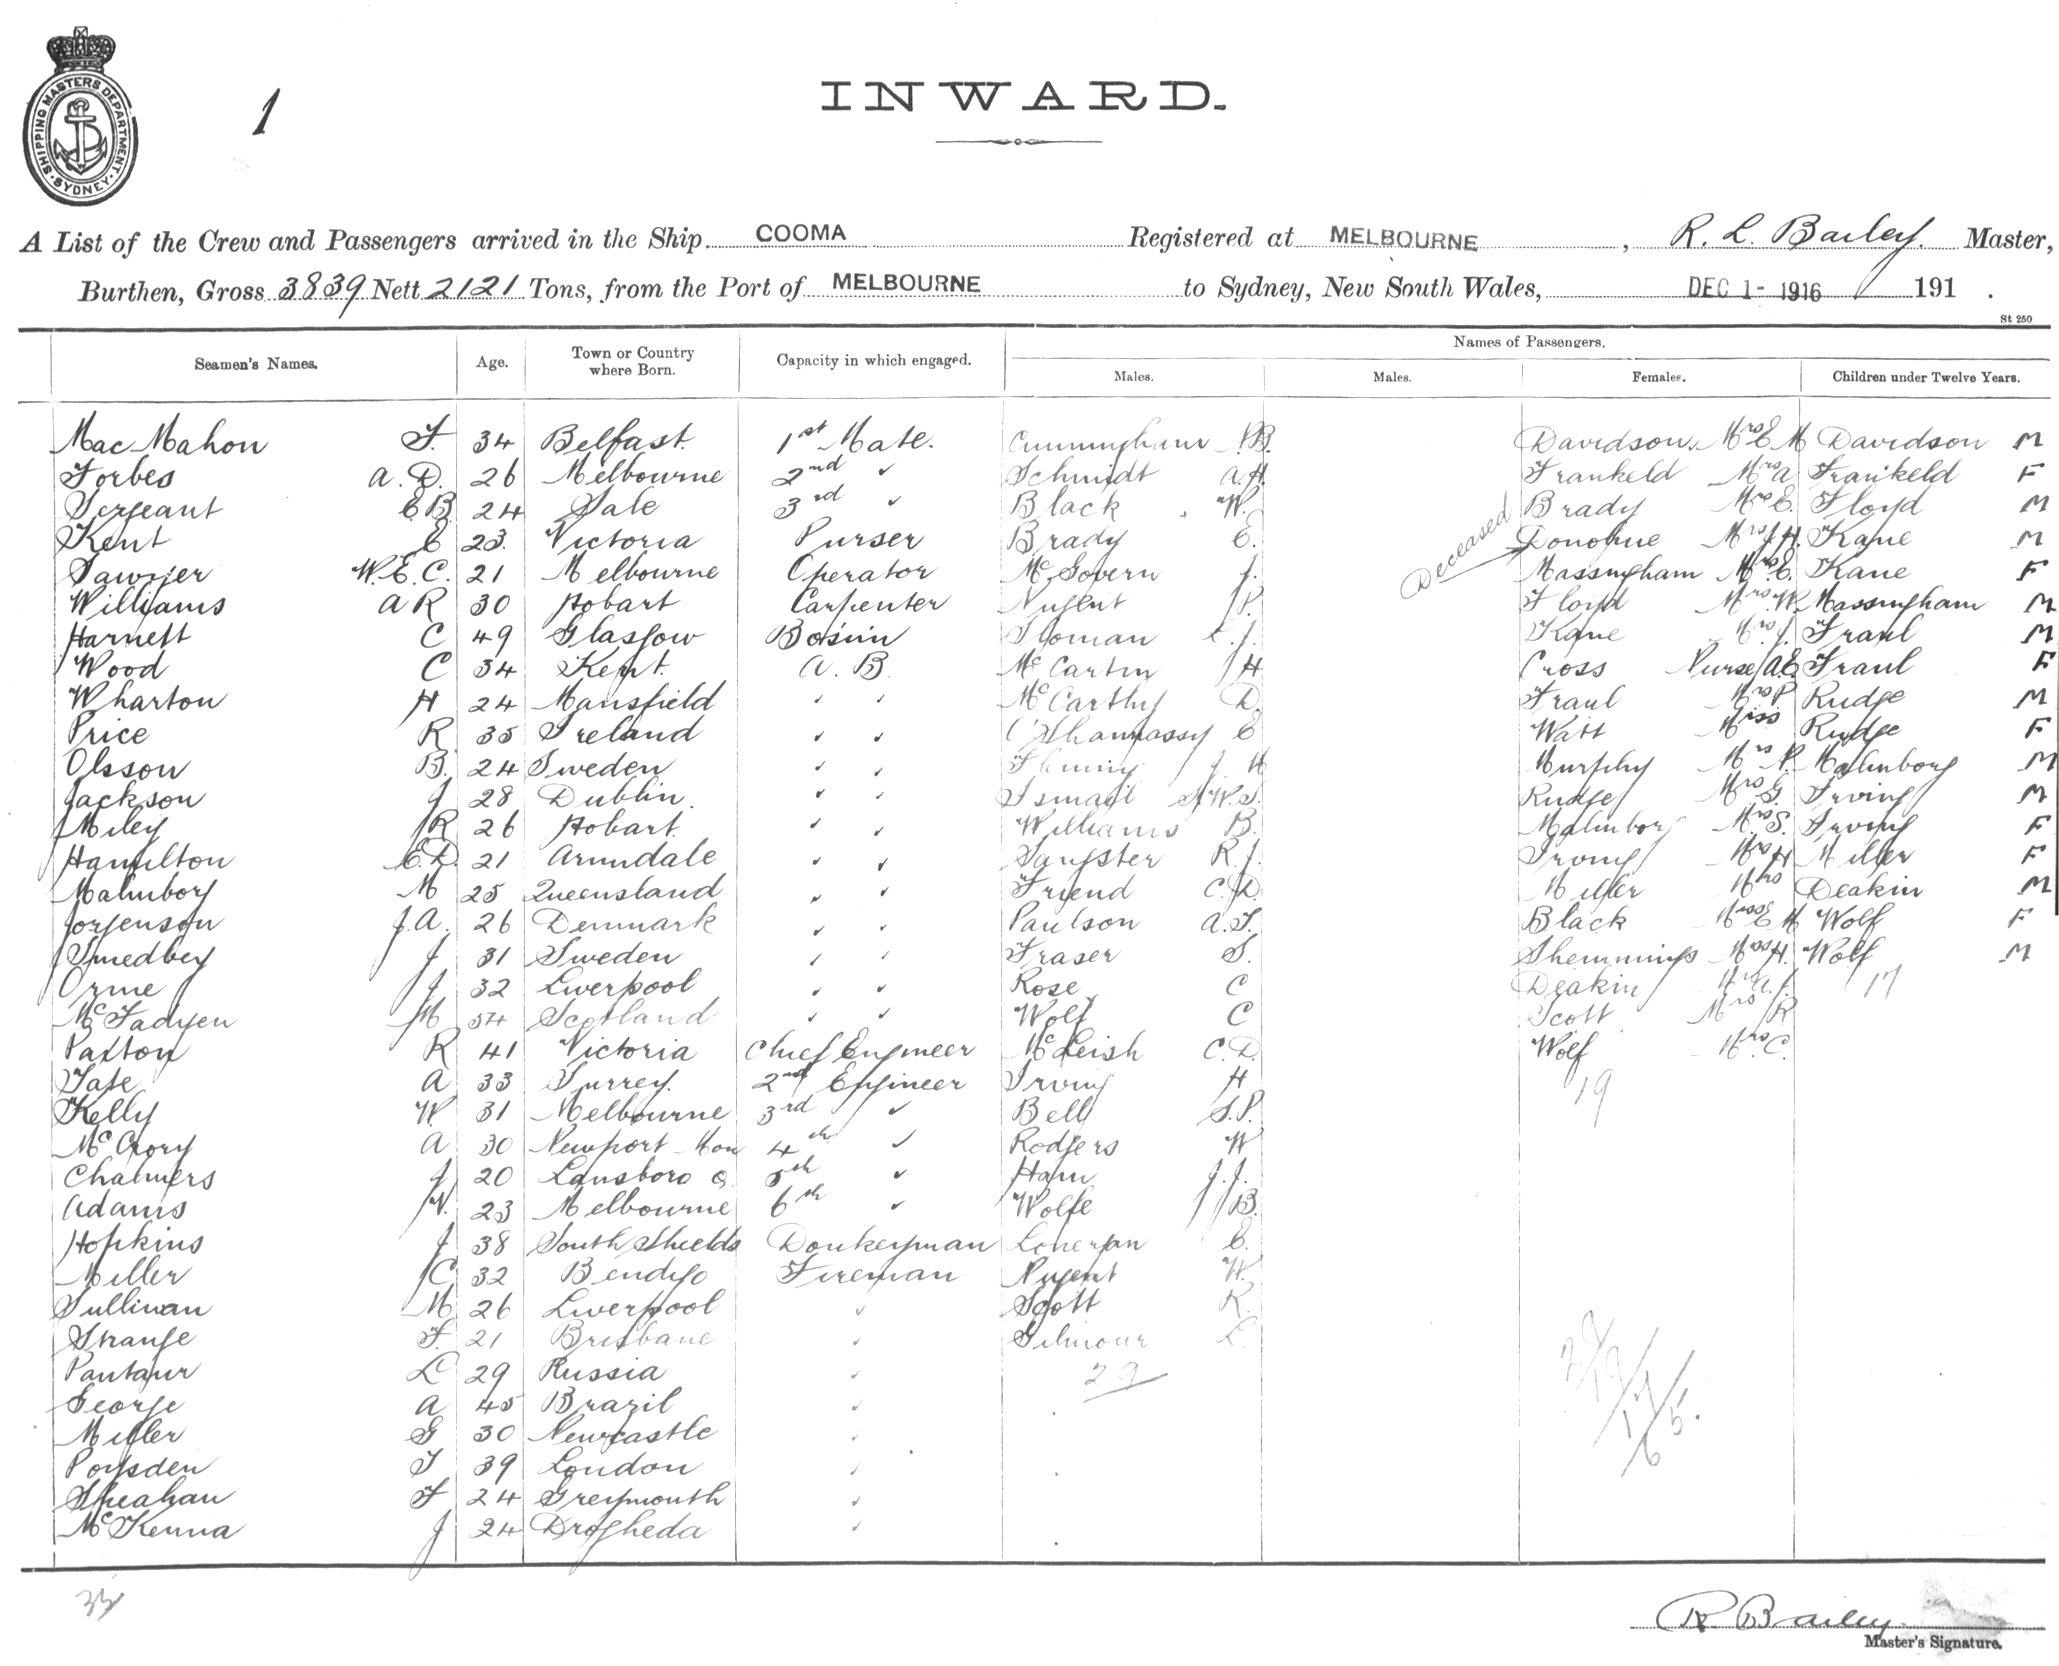 SHIPPING MASTERS DEPARTMENT. SYDNEY.
1
INWARD.
A List of the Crew and Passengers arrived in the Ship COOMA Registered at MELBOURNE, R. L. Bailey. Master,
Burthen, Gross 3839 Nett 2121 Tons, from the Port of MELBOURNE to Sydney, New South Wales, DEC 1 - 1916 191 .
St 250
Seamen's Names. Age. Town or Country where Born. Capacity in which engaged. Names of Passengers.
Males. Males. Females. Children under Twelve Years.
Mac Mahon F. 34 Belfast. 1st Mate. Cunningham P.B. Davidson. Mrs E M Davidson M
Forbes A. D. 26 Melbourne 2nd " Schmidt A.H. Frankeld Mrs A Frankeld F
Sergeant E B 24 Sale 3rd " Black W. Brady Mrs E. Floyd M
Kent E 23 Victoria Purser Brady E. Deceased Donohue Mrs J H. Kane M
Sawyer W. E. C. 21 Melbourne Operator McGovern J. Massingham Mrs E. Kane F
Williams A R 30 Hobart Carpenter Nugent P. Floyd Mrs W. Massingham M
Harnett C 49 Glasgow Bosun Sloman E. J. Kane Mrs J. Fraul M
Wood C 34 Kent. A. B. McCartin J H Cross Nurse A.E. Fraul F
Wharton H 24 Mansfield " " McCarthy D. Fraul Mrs P Rudge M
Price R 35 Ireland " " O'Shannassy E Watt Miss Rudge F
Olsson B. 24 Sweden " " Fleming J H Murphy Mrs N. Malmborg M
Jackson J 28 Dublin. " " Ismail W.S. Rudge Mrs G. Irving M
Miley R 26 Hobart. " " Williams B. Malmborg Mrs S. Irving F
Hamilton E.D. 21 Armadale " " Sangster R. J. Irving Mrs H Miller F
Malmborg M 25 Queensland " " Friend C. D. Miller Mrs Deakin M
Jorgenson J. A. 26 Denmark " " Paulson A. T. Black Mrs E M Wolf F
Smedbey J 31 Sweden " " Fraser S. Shemmings Mrs H. Wolf M
Orme J 32 Liverpool " " Rose C Deakin Mrs A. J. 17
McFadyen M 54 Scotland " " Wolf C Scott Mrs R
Paxton R 41 Victoria Chief Engineer McLeish C. D. Wolf Mrs C.
Tate A 33 Surrey. 2nd Engineer Irving H 19
Kelly W. 31 Melbourne 3rd " Bell S. P.
McCrory A 30 Newport Mon 4th " Rodgers W
Chalmers J 20 Lansboro Q 5th " Ham J. J.
Adams W. 23 Melbourne 6th " Wolfe J B.
Hopkins J 38 South Shields Donkeyman Lonergan E.
Miller C 32 Bendigo Fireman Nugent W.
Sullivan M 26 Liverpool " Scott R.
Strange F. 21 Brisbane " Gilmour L.
Pantaur L 29 Russia " 29
George A 45 Brazil " 29/19/17/65.
Miller G 30 Newcastle "
Poysden T 39 London "
Sheahan F 24 Greymouth "
McKenna J 24 Drogheda "
R L Bailey
Master's Signature.